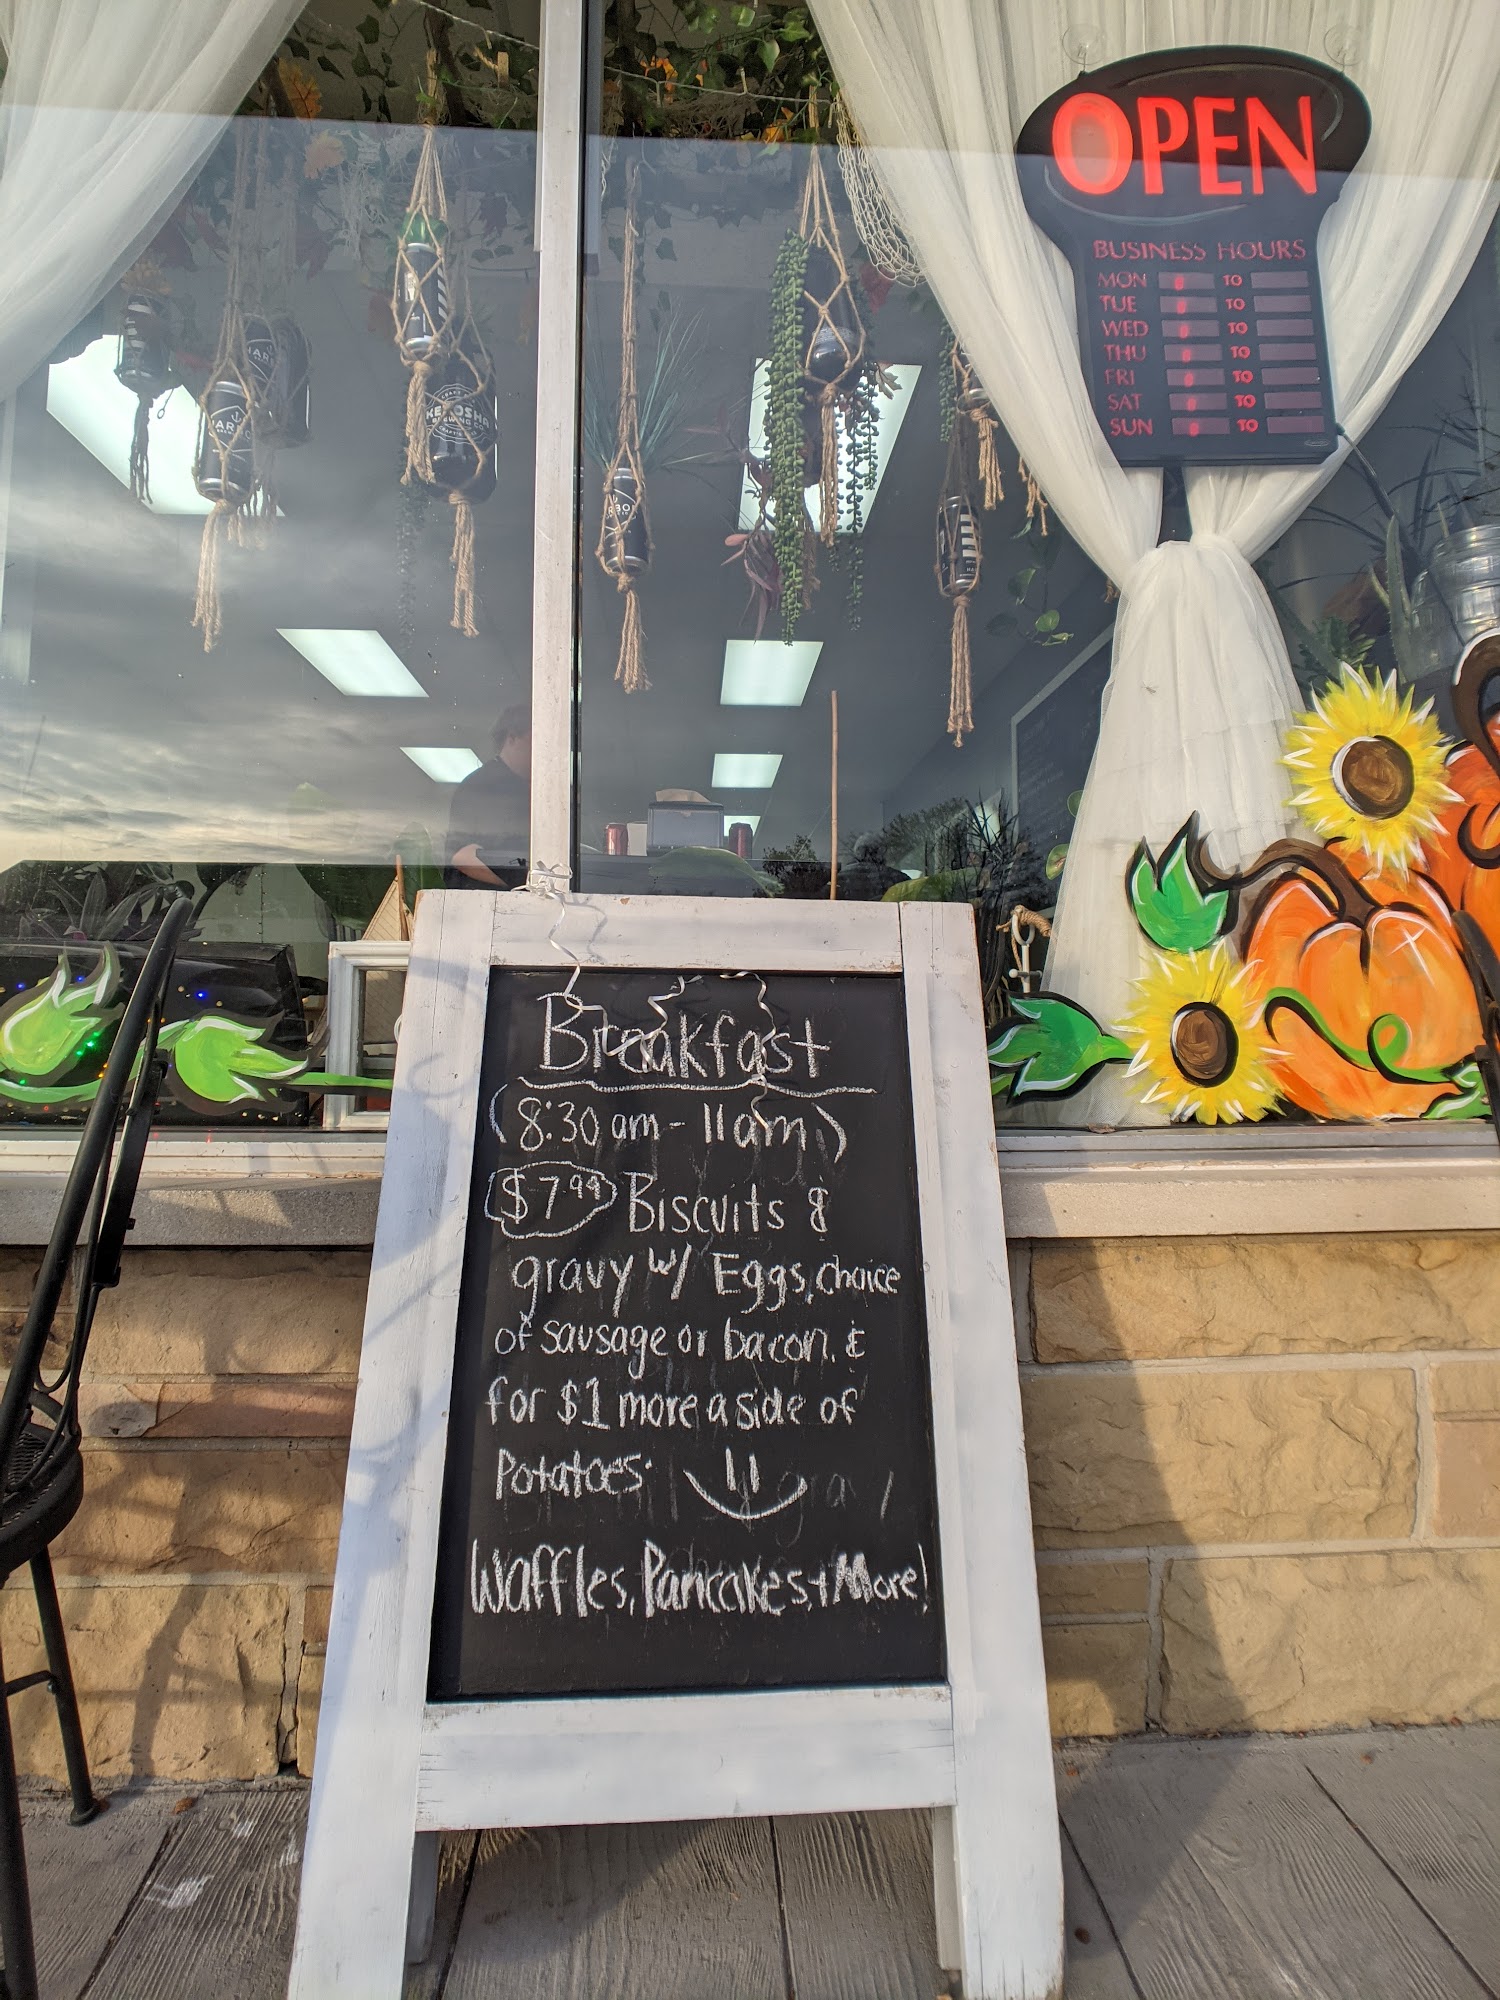 OPEN
BUSINESS HOURS
MON 8 TO
TUE 8 TO
WED 8 TO
THU 8 TO
FRI 8 TO
SAT 8 TO
SUN 8 TO
HAR
KENOSHA
BREWING CO
RBO
Breakfast
(8:30 am - 11am)
$7.99 Biscuits &
gravy w/ Eggs, choice
of sausage or bacon. &
for $1 more a side of
Potatoes.
Waffles, Pancakes, + More!